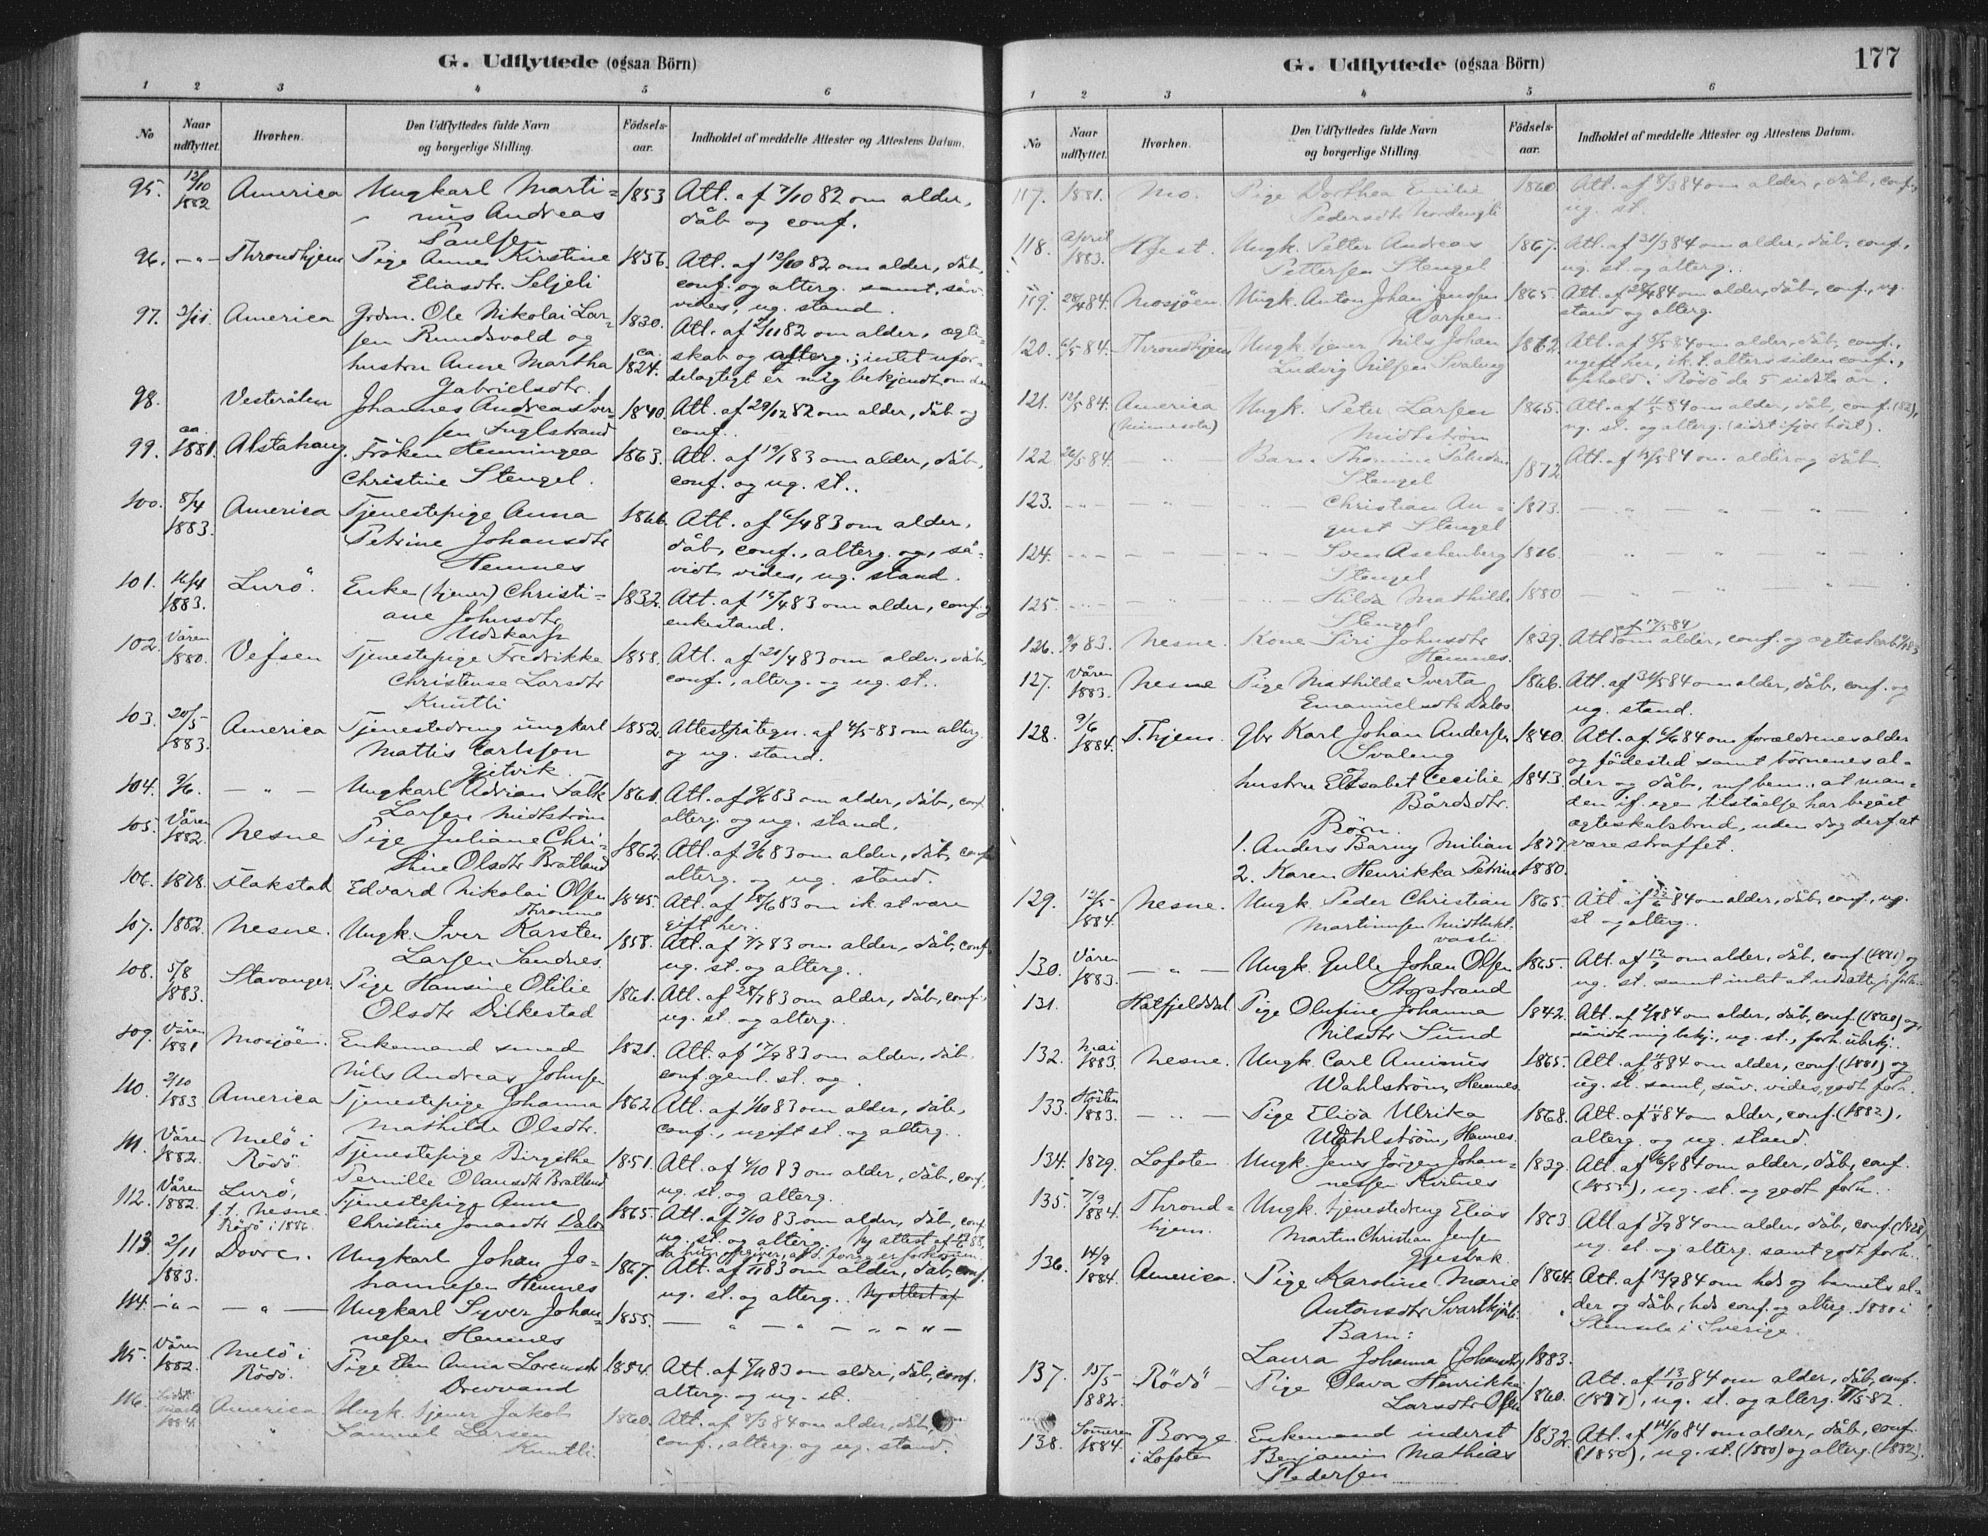 G. Udflyttede (ogsaa Börn)
1 2 3 4 5 6
No Naar udflyttet. Hvorhen. Den Udflyttedes fulde Navn og borgerlige Stilling. Födsels-aar. Indholdet af meddelte Attester og Attestens Datum.
95. 12/10 1882 America Ungkarl Marti- 1853 Att. af 7/10 82 om alder,
nius Andreas dåb og conf.
Paulsen
96. -"- Throndhjem Pige Anne Kirstine 1836. Att. af 12/10 82 om alder, dåb,
Eliasdtr. Seljeli conf. og alterg. samt, såv.
vides, ug. stand.
97. America Grdm. Ole Nikolai Lar- 1830. Att. af 2/11 82 om alder, ægte-
sen Rundsvold og skab og alterg.; intet ufor-
hustru Anne Martha ca. 1824. delagtigt er mig bekjendt om dem
Gabrielsdtr.
98. Vesterålen Johannes Andreas Iver- 1840. Att. af 29/12 82 om alder, dåb og
sen Fuglstrand conf.
99. ca. 1881. Alstahaug. Fröken Henningea 1863. Att. af 19/1 83 om alder, dåb,
Christine Stengel. conf. og ug. st..
100. 8/4 1883. America Tjenestepige Anna 1866. Att. af 6/4 83 om alder,
Petrine Johansdtr dåb, conf., alterg. og, så-
Hemnes vidt vides, ug. stand.
101. 16/4 1883. Lurö. Enke (tjener) Christi- 1832. Att. af 15/4 83 om alder, conf. og
ane Johnsdtr enkestand.
Udskarpen
102. Våren 1880. Vefsen Tjenestepige Fredrikke 1858. Att. af 20/4 83 om alder, dåb,
Christense Larsdtr conf., alterg. og ug. st..
Knutli
103. 20/5 1883. America Tjenestedreng ungkarl 1852. Attestpåtegn. af 4/5-83 om alterg
Mattis Carlsson og ug. stand.
Gjetvik.
104. 9/6. - " - Ungkarl Adrian Falk 1861. Att. af 9/6 83 om alder, dåb, conf.
Larsen Midtström alterg. og ug. stand.
105. Våren 1882. Nesne Pige Juliane Chri- 1862. Att. af 9/6 83 om alder, dåb, conf.
stine Olsdtr Bratland alterg. og ug. stand.
106. 1878. Flakstad Edvard Nikolai Olsen 1845. Att. af 18/6 83 om ik. at være
gift her.
107. 1882. Nesne. Ungk. Iver Karsten 1858. Att. af 7/7 83 om alder, dåb, conf.
Larsen Sandnes. ug. st. og alterg..
108. 5/8 1883. Stavanger. Pige Hansine Otilie 1861. Att. af 28/7 83 om alder, dåb, conf.,
Olsdtr Dilkestad ug. st. og alterg..
109. Våren 1881 Mosjöen. Enkemand smed 1821. Att. af 17/9 83 om alder, dåb,
Nils Andreas Johnsen conf. og enl. st. og .
110. 2/10 1883 America Tjenestepige Johanna 1862. Att. af 1/10 83 om alder, dåb,
Mathilde Olsdtr. conf., ugift st. og alterg..
111. Våren 1882. Melö i Rödö. Tjenestepige Birgithe 1851. Att. af 4/10 83 om alder, dåb, conf.,
Pernille Olausdtr Bratland ug. st. og alterg.
112. Våren 1882 Lurö, f.t. Nesne Rödö i 1886 Tjenestepige Anne 1865. Att. af 7/10 83 om alder, dåb, conf.
Christine Jonasdtr Dalos ug. st. og alterg. Ny attest af 88,
da hun opgiver, at d. forrige er forkommen
113. 2/11 1883. Dovre. Ungkarl Johan Jo- 1867. Att. af 1/11 83 om alder, dåb, conf.
hannesen Hemnes ug. st. og alterg.. Ny attest af
114. -"- - " - Ungkarl Syver Johan- 1855. - " - " - " - " -
nesen Hemnes
115. Våren 1882. Melö i Rödö. Pige Elen Anna Lorensdtr 1854. Att. af 5/11 83 om alder, dåb, conf.
Drevvand alterg. og ug. st.
116. Sidst marts 1884. America Ungk. tjener Jakob 1860. Att. af 8/3 84 om alder, dåb,
Samuel Larsen conf., alterg. og ug. stand.
Knutli.
G. Udflyttede (ogsaa Börn) 177
1 2 3 4 5 6
No Naar udflyttet. Hvorhen. Den Udflyttedes fulde Navn og borgerlige Stilling. Födsels-aar. Indholdet af meddelte Attester og Attestens Datum.
117. 1881. Mo. Pige Dorthea Emilie 1860. Att. af 8/3 84 om alder, dåb, conf.,
Pedersdtr Nordengli ug. st.
118. April 1883. Hfjest. Ungk. Petter Andreas 1867. Att. af 31/3 84 om alder, dåb, conf.,
Pettersen Stengel ug. st. og alterg..
119. 28/4 84. Mosjöen. Ungk. Anton Johan Jensen 1865. Att. af 28/4 84 om alder, dåb, conf., ug.
stand og alterg.
120. 6/5 84. Throndhjem Ungk. tjener Nils Johan 1862. Att. af 5/5 84 om alder, dåb, conf.,
Ludvig Nilsen Svaleng ugift her, ik. t. alters siden conf.,
ophold i Rödö de 5 sidste år.
121. 12/5 84. America (Minnesota) Ungk. Peter Larsen 1865. Att. af 11/5 84 om alder, dåb, conf. (82),
Midtström ug. st. og alterg. (sidst ifjor höst).
122. 26/5 84. - " - Barn Thomine 1872 Att. af /5 84 om alder og dåb
Stengel
123. - " - - " - - " - Christian Au- 1873. - " - " - " -
gust Stengel
124. - " - - " - - " - Sven Aschenberg 1876 - " - " - " -
Stengel
125. - " - - " - - " - Hilda Mathilde 1880 - " - " -
Stengel
126. 9/9 83. Nesne. Kone Siri Johnsdtr 1839. Att. af 17/5 84 om alder, conf. og ægteskab
Hemnes.
127. Våren 1883. Nesne Pige Mathilde Iverta 1866. Att. af 31/5 84 om alder, dåb, conf. og
Emanuelsdtr Dalos ug. stand.
128. 9/6 1884. T.hjem. Gbr Karl Johan Andersen 1840. Att. af 6/6 84 om forældrenes alder
Svaleng og födested samt börnenes al-
hustru Elisabet Cecilie 1843. der og dåb, mf bem. at man-
Bårdsdtr. den if. egen tilståelse har begået
Börn. ægteskabsbrud, uden dog derf. at
1. Anders Barny Milian 1877 være straffet.
2. Karen Henrikka Petrine 1880.
129. 12/5 1884. Nesne. Ungk. Peder Christian 1865. Att. af 84 om alder, dåb, conf., ug.
Martinusen st og alterg..
130. Våren 1883. - " - Ungk. Gulle Johan Olsen 1865. Att. af 12/7 om alder, dåb, conf (1881) og
Skogstrand ug. st. samt intet at udsætte p. forh.
131. Hatfjelddal. Pige Olufine Johanna 1842. Att. af 2/8 84 om alder, dåb, conf. (1860) og,
Nilsdtr Sund såvidt mig bekj., ug. st., forh. ubekj.
132. Mai 1883. Nesne. Ungk. Carl Aminius 1865. Att. af 11/8 84 om alder, conf (1881) og
Wahlström, Hemnes. ug. st. samt, såv. vides, godt forh.
133. Hösten 1883. - " - Pige Elisa Ulrika 1868. Att. af 11/8 84 om alder, conf. (1882),
Wahlström, Hemnes. alterg. og ug. stand.
134. 1879. Lofoten Ungk. Jens Jörgen Johan- 1839. Att. af 16/8 84 om alder, dåb, conf.
nessen (1855), ug. st. og godt forh..
135. 7/9 1884. Thrond-hjem. Ungk. tjenestedreng Elias 1863. Att. af 5/9 84 om alder, dåb, conf.
Martin Christian Jensen ug. st. og alterg. samt godt forh.
Gjesbak
136. 14/9 1884. America. Pige Karoline Marie 1864. Att. af 13/9 84 om hds og barnets al-
Antonsdtr. der og dåb, hds conf. og alterg. 1880 i
Barn: Stensele i Sverige.
Laura Johanna Johansdtr 1883.
137. 15/5 1882. Rödö Pige Olava Henrikke 1860. Att. af 13/10 84 om alder, dåb, conf.
Larsdtr (1877), ug. st. og alterg. 82.
138. Sommeren 1884. Borge i Lofoten Enkemand inderst 1832. Att. af 14/10 84 om alder, dåb, conf.
Benjamin Mathias (1850), ug. st. (1880) og alterg. (1882).
Pedersen